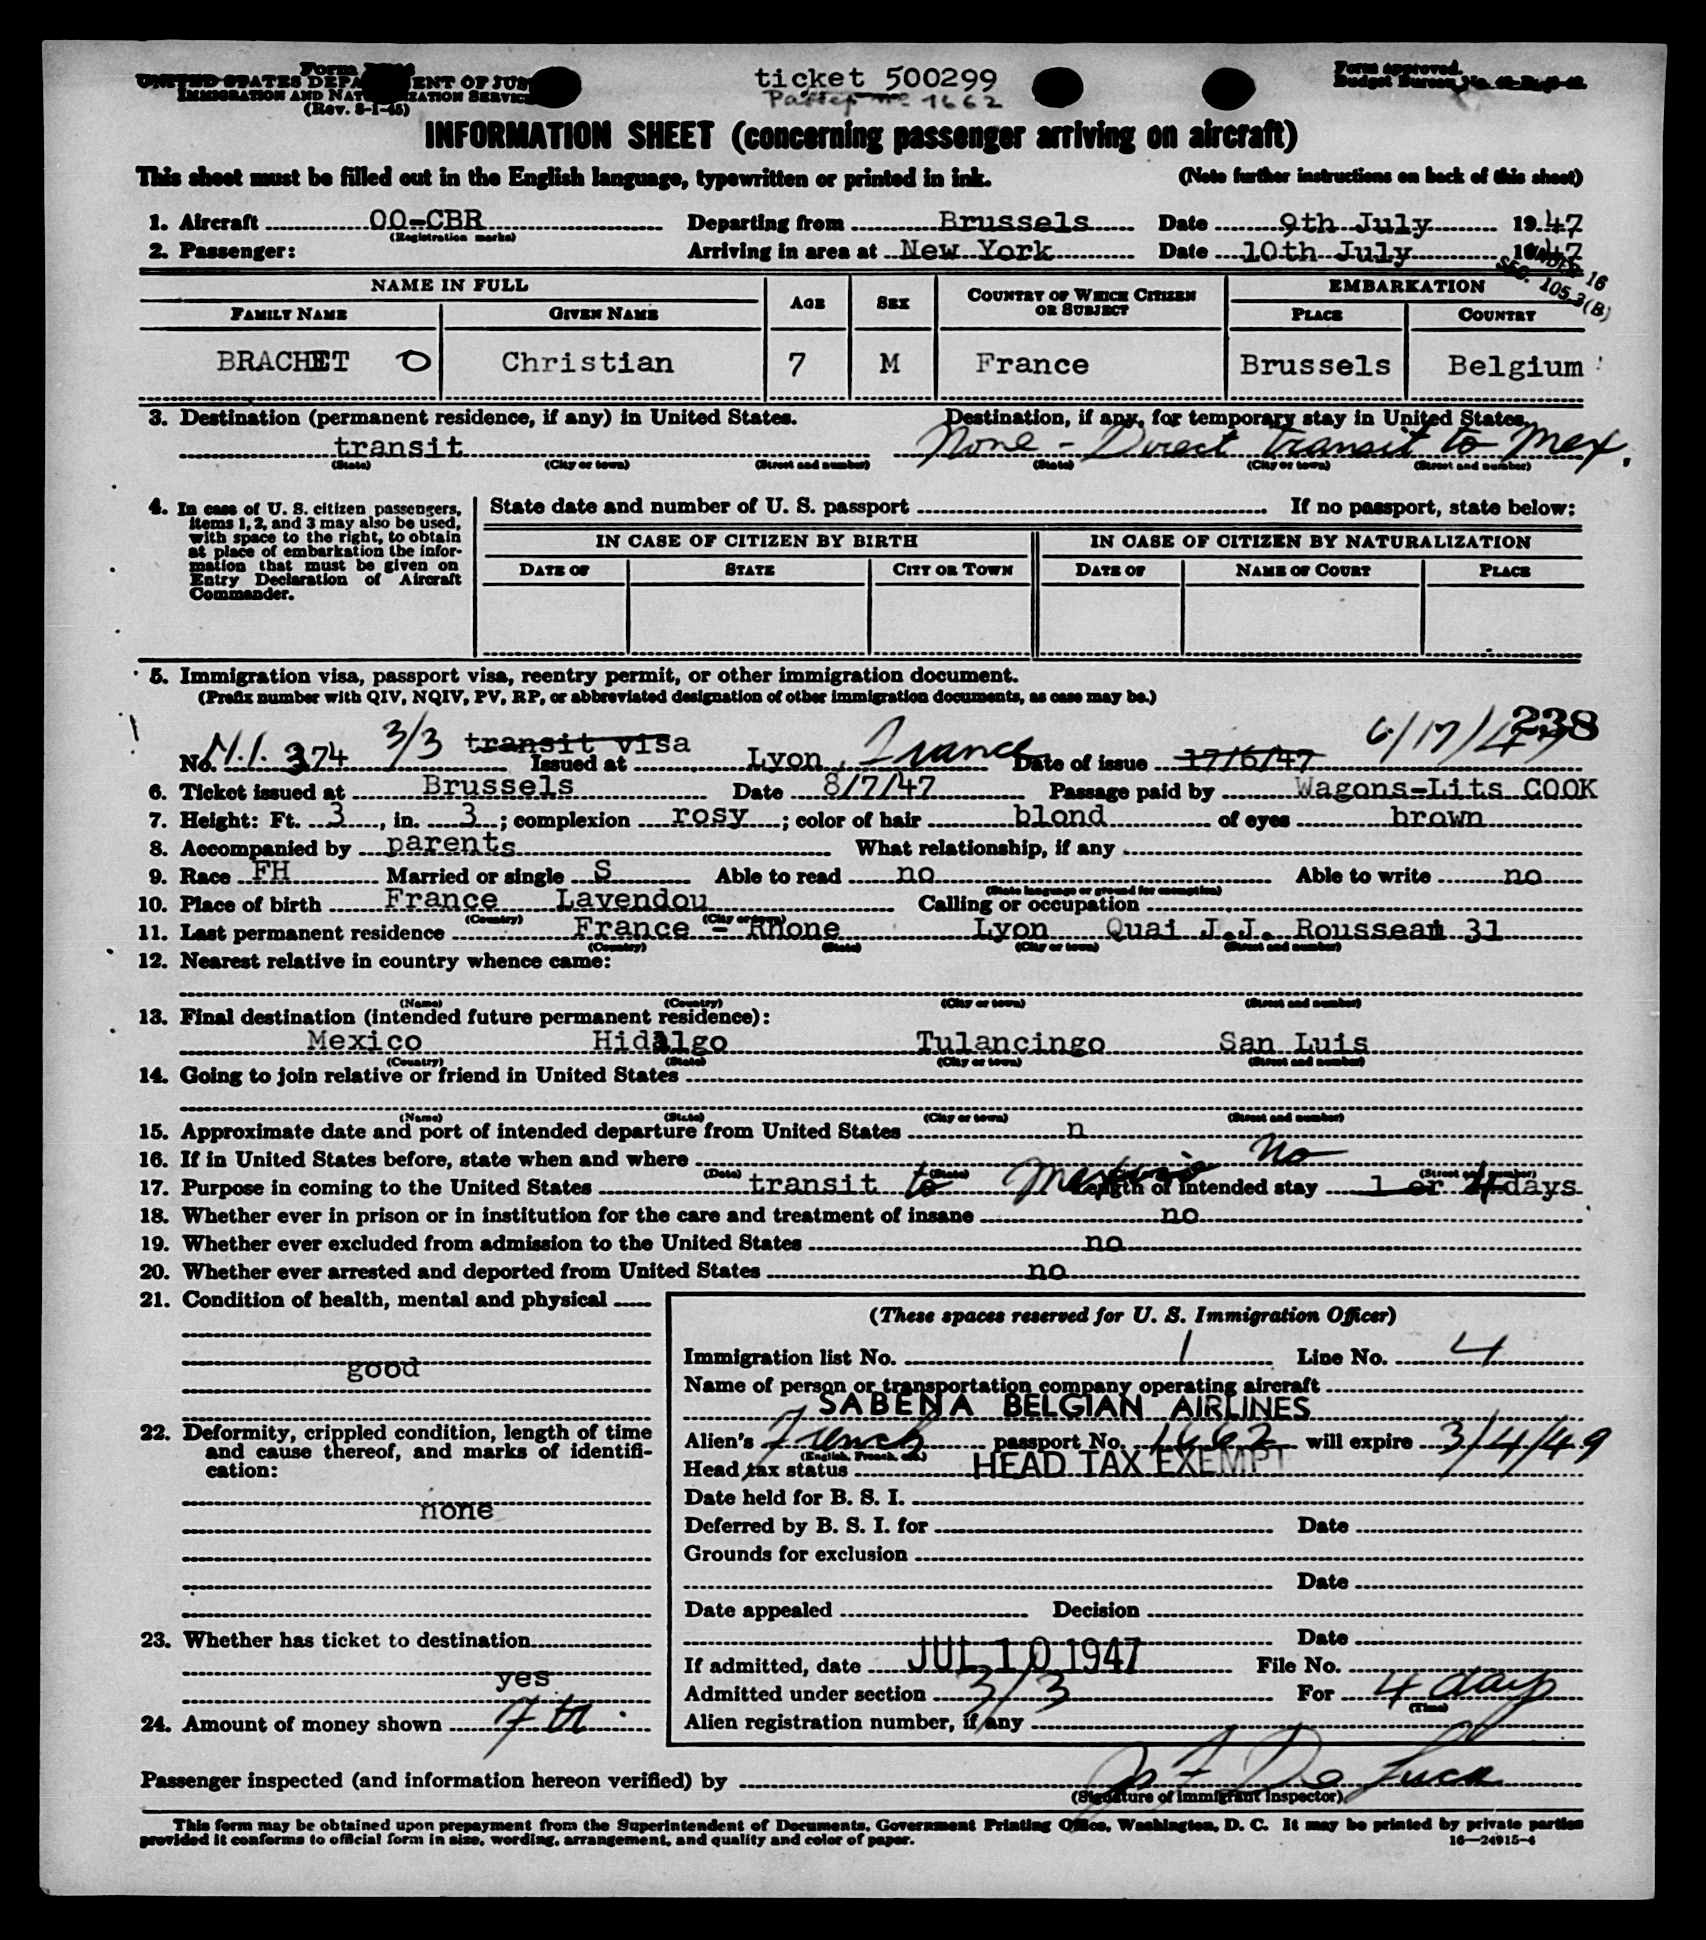 ticket 500299
UNITED STATES DEPA ENT OF JUS
IMMIGRATION AND NAT IZATION SERVIC
(Rev. 8-1-45)
Form approved.
Budget Bureau No.
1662
INFORMATION SHEET (concerning passenger arriving on aircraft)
This sheet must be filled out in the English language, typewritten or printed in ink. (Note further instructions on back of this sheet)
1. Aircraft OO-CBR Departing from Brussels Date 9th July 1947
(Registration marks)
2. Passenger: Arriving in area at New York Date 10th July 1947
SEC. 105.3(B)
NAME IN FULL AGE SEX COUNTRY OF WHICH CITIZEN OR SUBJECT EMBARKATION
FAMILY NAME GIVEN NAME PLACE COUNTRY
BRACHET O Christian 7 M France Brussels Belgium
3. Destination (permanent residence, if any) in United States. Destination, if any, for temporary stay in United States.
transit None - Direct transit to Mex.
(State) (City or town) (Street and number) (State) (City or town) (Street and number)
4. In case of U. S. citizen passengers, items 1, 2, and 3 may also be used, with space to the right, to obtain at place of embarkation the information that must be given on Entry Declaration of Aircraft Commander.
State date and number of U. S. passport If no passport, state below:
IN CASE OF CITIZEN BY BIRTH IN CASE OF CITIZEN BY NATURALIZATION
DATE OF STATE CITY OR TOWN DATE OF NAME OF COURT PLACE
5. Immigration visa, passport visa, reentry permit, or other immigration document.
(Prefix number with QIV, NQIV, PV, RP, or abbreviated designation of other immigration documents, as case may be.)
238
No. N.I. 374 3/3 transit visa Issued at Lyon, France Date of issue 17/6/47 6/17/47
6. Ticket issued at Brussels Date 8/7/47 Passage paid by Wagons-Lits COOK
7. Height: Ft. 3, in. 3; complexion rosy; color of hair blond of eyes brown
8. Accompanied by parents What relationship, if any
9. Race FH Married or single S Able to read no Able to write no
(State language or ground for exemption)
10. Place of birth France Lavendou Calling or occupation
(Country) (City or town)
11. Last permanent residence France - Rhone Lyon Quai J.J. Rousseau 31
(Country) (State) (City or town) (Street and number)
12. Nearest relative in country whence came:
(Name) (Country) (City or town) (Street and number)
13. Final destination (intended future permanent residence):
Mexico Hidalgo Tulancingo San Luis
(Country) (State) (City or town) (Street and number)
14. Going to join relative or friend in United States
(Name) (State) (City or town) (Street and number)
15. Approximate date and port of intended departure from United States n
16. If in United States before, state when and where No
(Date) (State) (Street and number)
17. Purpose in coming to the United States transit to Mexico Length of intended stay 1 or 4 days
18. Whether ever in prison or in institution for the care and treatment of insane no
19. Whether ever excluded from admission to the United States no
20. Whether ever arrested and deported from United States no
21. Condition of health, mental and physical
good
22. Deformity, crippled condition, length of time and cause thereof, and marks of identification:
none
23. Whether has ticket to destination
yes
24. Amount of money shown
(These spaces reserved for U. S. Immigration Officer)
Immigration list No. 1 Line No. 4
Name of person or transportation company operating aircraft
SABENA BELGIAN AIRLINES
Alien's French passport No. 1662 will expire 3/4/49
(English, French, etc.)
Head tax status HEAD TAX EXEMPT
Date held for B. S. I.
Deferred by B. S. I. for Date
Grounds for exclusion
Date
Date appealed Decision
Date
If admitted, date JUL 10 1947 File No.
Admitted under section 3/3 For 4 days
(Time)
Alien registration number, if any
Passenger inspected (and information hereon verified) by
(Signature of immigrant inspector)
This form may be obtained upon prepayment from the Superintendent of Documents, Government Printing Office, Washington, D. C. It may be printed by private parties
provided it conforms to official form in size, wording, arrangement, and quality and color of paper. 16—24915-4